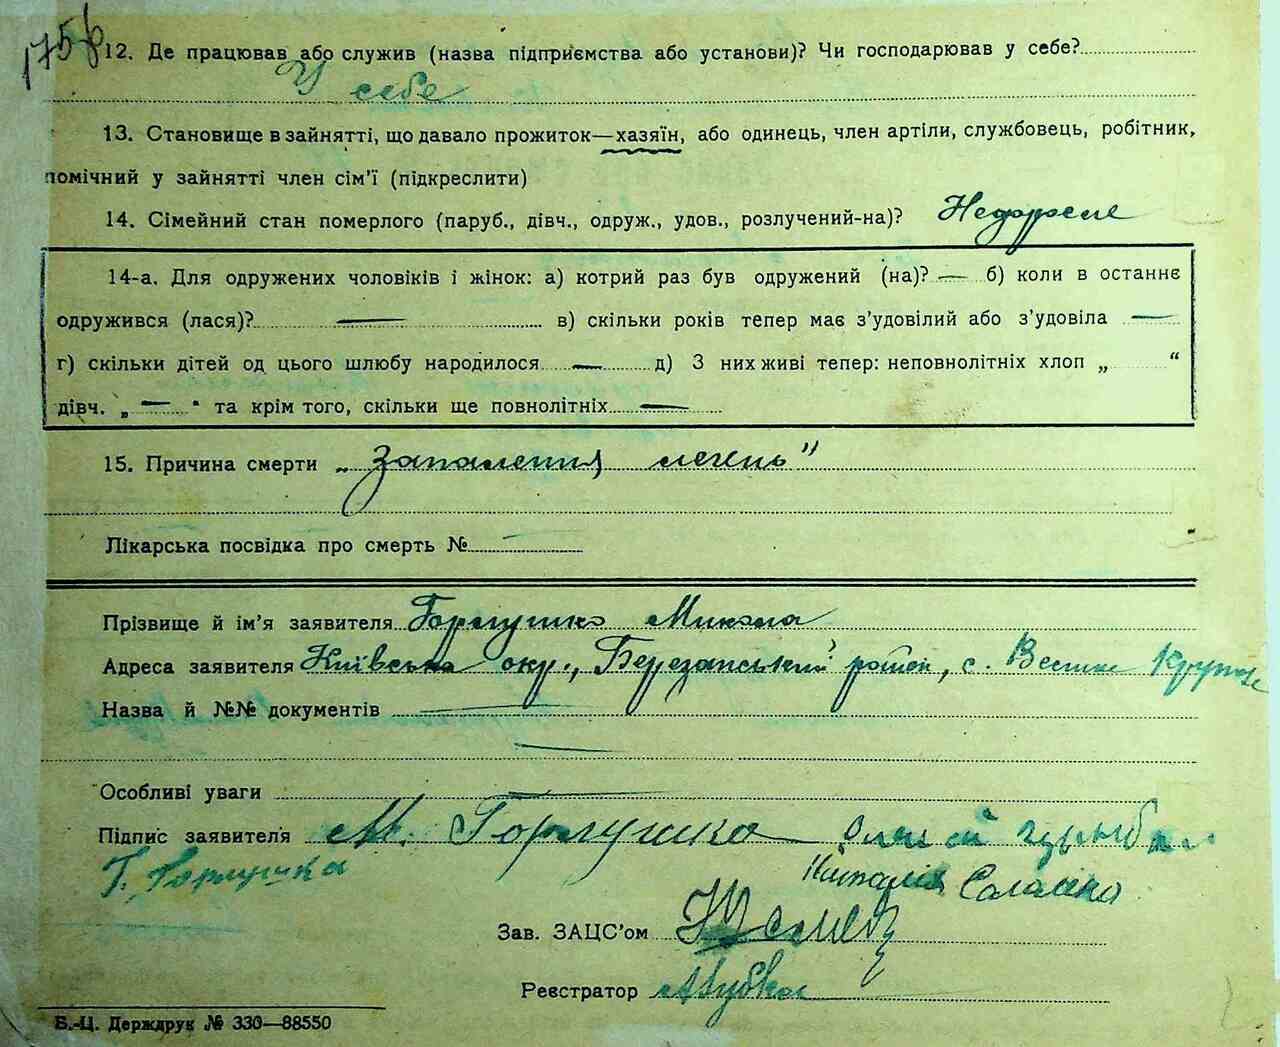 175б
12. Де працював або служив (назва підприємства або установи)? Чи господарював у себе?
У себе
13. Становище в зайнятті, що давало прожиток—хазяїн, або одинець, член артіли, службовець, робітник,
помічний у зайнятті член сім’ї (підкреслити)
14. Сімейний стан померлого (паруб., дівч., одруж., удов., розлучений-на)?
14-а. Для одружених чоловіків і жінок: а) котрий раз був одружений (на)? — б) коли в останнє
одружився (лася)? — в) скільки років тепер має з’удовілий або з’удовіла —
г) скільки дітей од цього шлюбу народилося — д) З них живі тепер: неповнолітніх хлоп „ “
дівч. „ — “ та крім того, скільки ще повнолітніх —
15. Причина смерти „Запалення легень"
Лікарська посвідка про смерть №
Прізвище й ім’я заявителя Горлушко Микола
Адреса заявителя Київська окр., Березанський район, с.
Назва й №№ документів —
—
Особливі уваги —
Підпис заявителя М. Горлушка
Г. Горлушка
Наталія
Зав. ЗАЦС’ом
Реєстратор
Б.-Ц. Держдрук № 330—88550